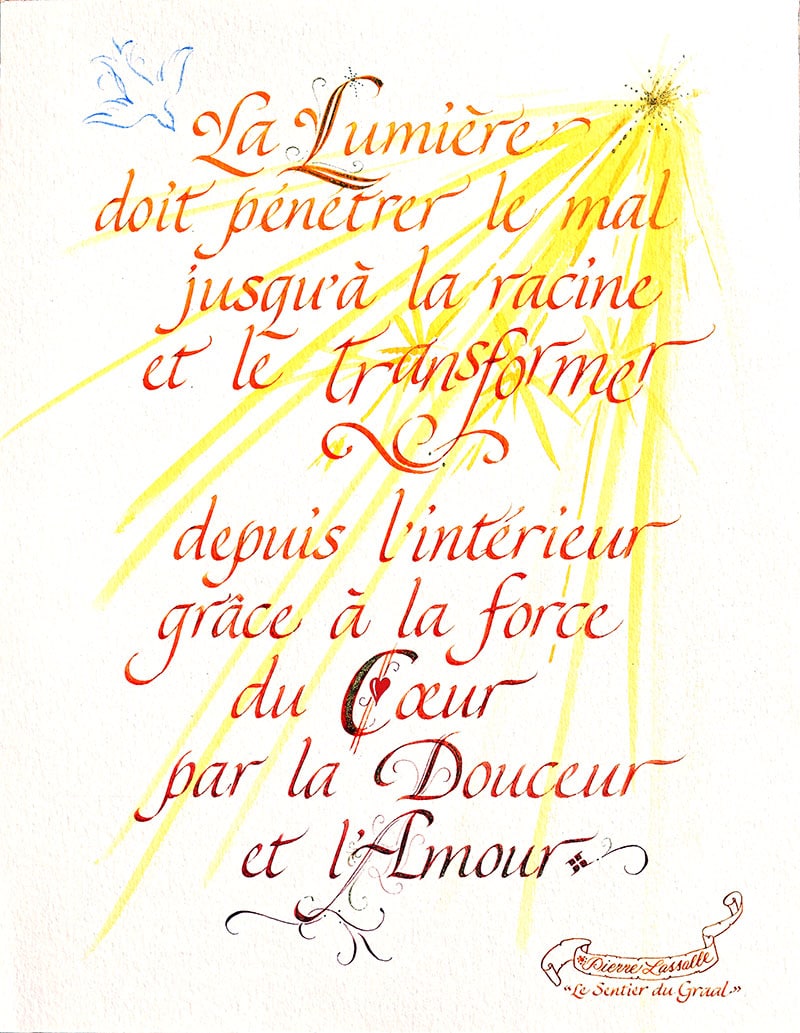 La Lumière
doit pénétrer le mal
jusqu'à la racine
et le transformer
depuis l'intérieur
grâce à la force
du Cœur
par la Douceur
et l'Amour
Pierre Lassalle
"Le Sentier du Graal"